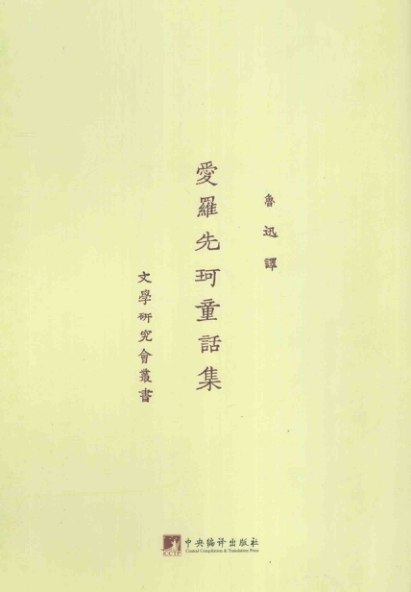 魯迅譯
愛羅先珂童話集
文學研究會叢書
CCTP
中央编译出版社
Central Compilation & Translation Press